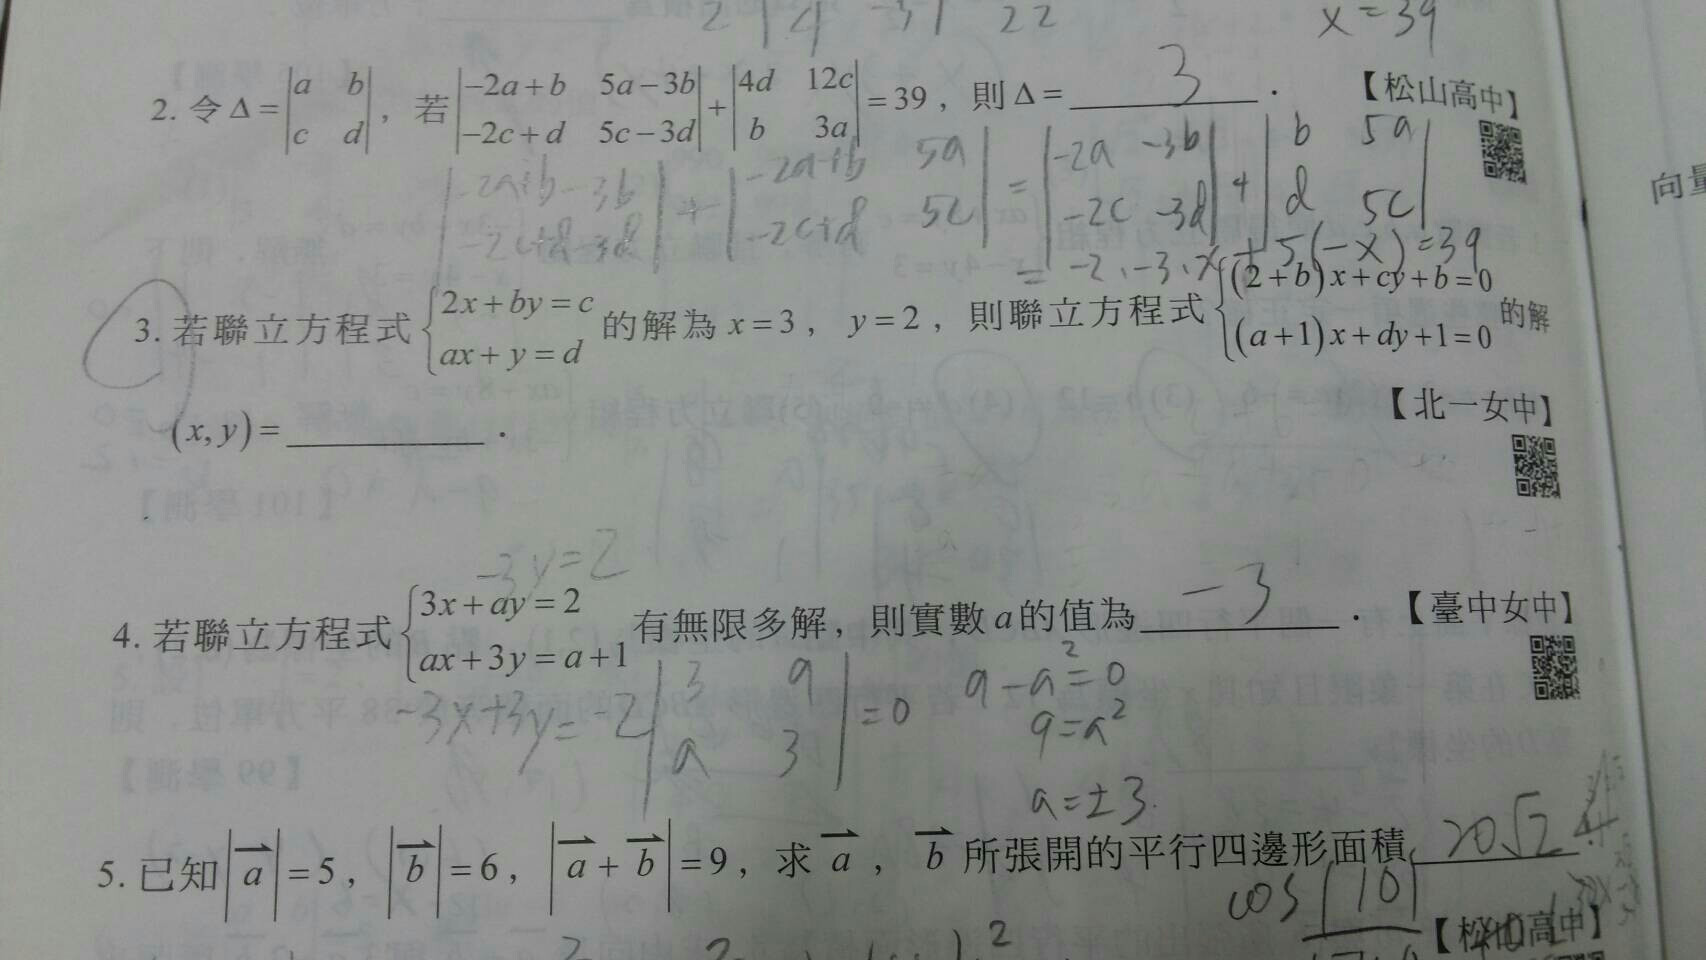 2 | 4 -3 | 22 x=39
2. 令 Δ = |a b; c d|, 若 |-2a+b 5a-3b; -2c+d 5c-3d| + |4d 12c; b 3a| = 39, 則 Δ = 3 . 【松山高中】
|-2a+b -3b; -2c+d -3d| + |-2a+b 5a; -2c+d 5c| = |-2a -3b; -2c -3d| + |b 5a; d 5c|
= -2·-3·x + 5(-x) = 39
向量
3. 若聯立方程式 {2x+by=c; ax+y=d 的解為 x=3, y=2, 則聯立方程式 {(2+b)x+cy+b=0; (a+1)x+dy+1=0 的解
(x, y) = ________ . 【北一女中】
-3y=2
4. 若聯立方程式 {3x+ay=2; ax+3y=a+1 有無限多解, 則實數 a 的值為 -3 . 【臺中女中】
-3x+3y=-2 |3 a; a 3| = 0 9-a²=0
9=a²
a=±3.
5. 已知 |a⃗|=5, |b⃗|=6, |a⃗+b⃗|=9, 求 a⃗, b⃗ 所張開的平行四邊形面積 20√2 .
cos |10|
【松山高中】